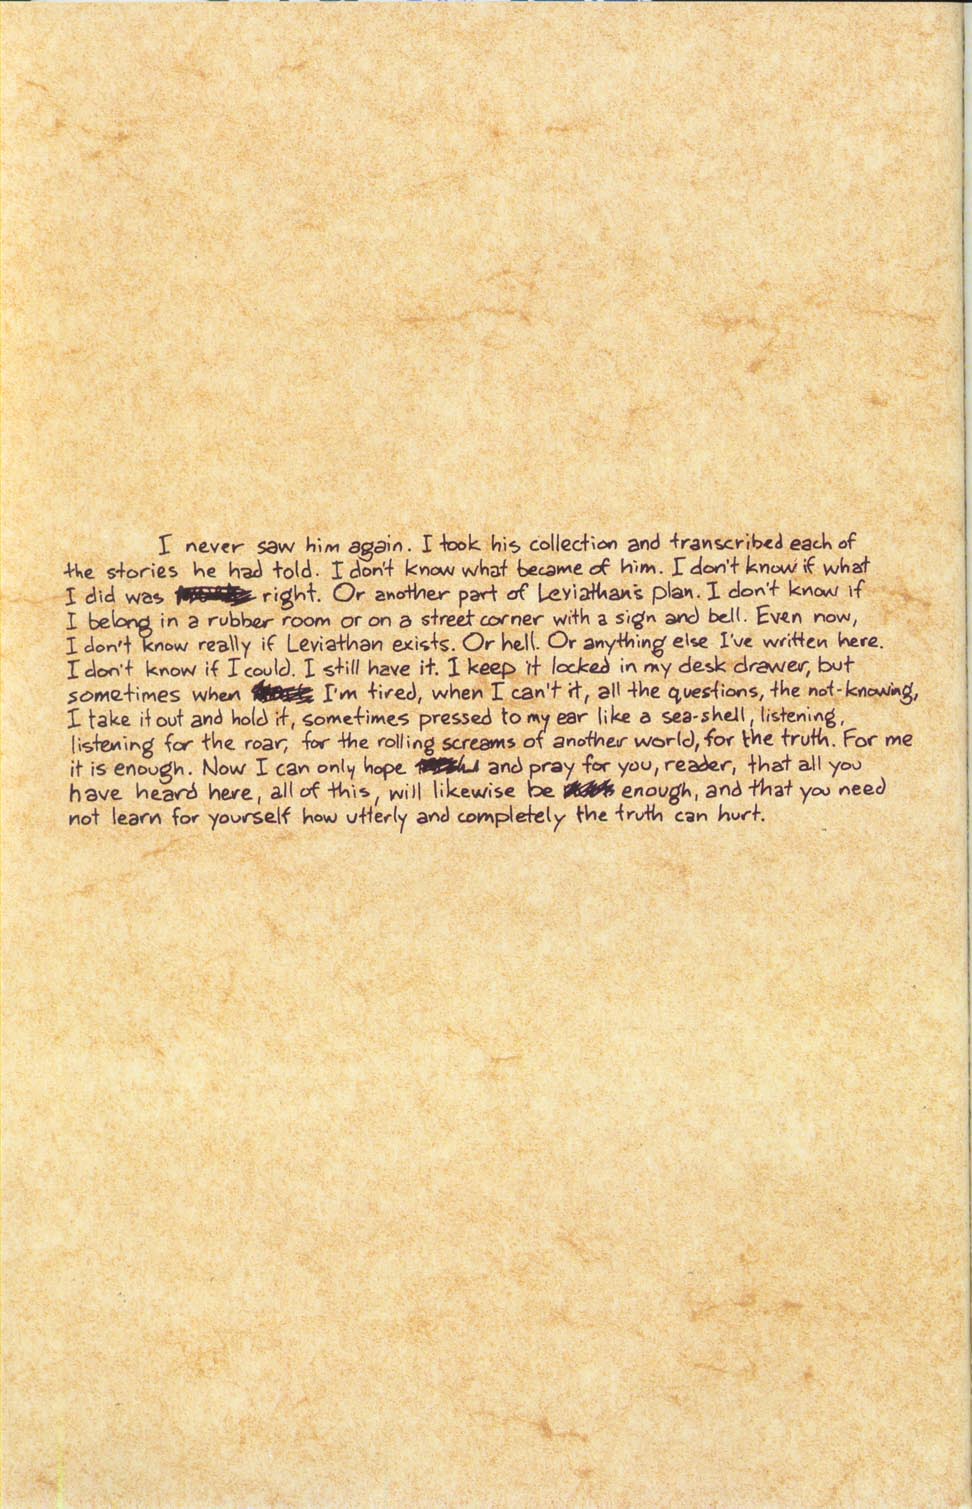 I never saw him again. I took his collection and transcribed each of
the stories he had told. I don't know what became of him. I don't know if what
I did was right. Or another part of Leviathan's plan. I don't know if
I belong in a rubber room or on a street corner with a sign and bell. Even now,
I don't know really if Leviathan exists. Or hell. Or anything else I've written here.
I don't know if I could. I still have it. I keep it locked in my desk drawer, but
sometimes when I'm tired, when I can't it, all the questions, the not-knowing,
I take it out and hold it, sometimes pressed to my ear like a sea-shell, listening,
listening for the roar, for the rolling screams of another world, for the truth. For me
it is enough. Now I can only hope and pray for you, reader, that all you
have heard here, all of this, will likewise be enough, and that you need
not learn for yourself how utterly and completely the truth can hurt.